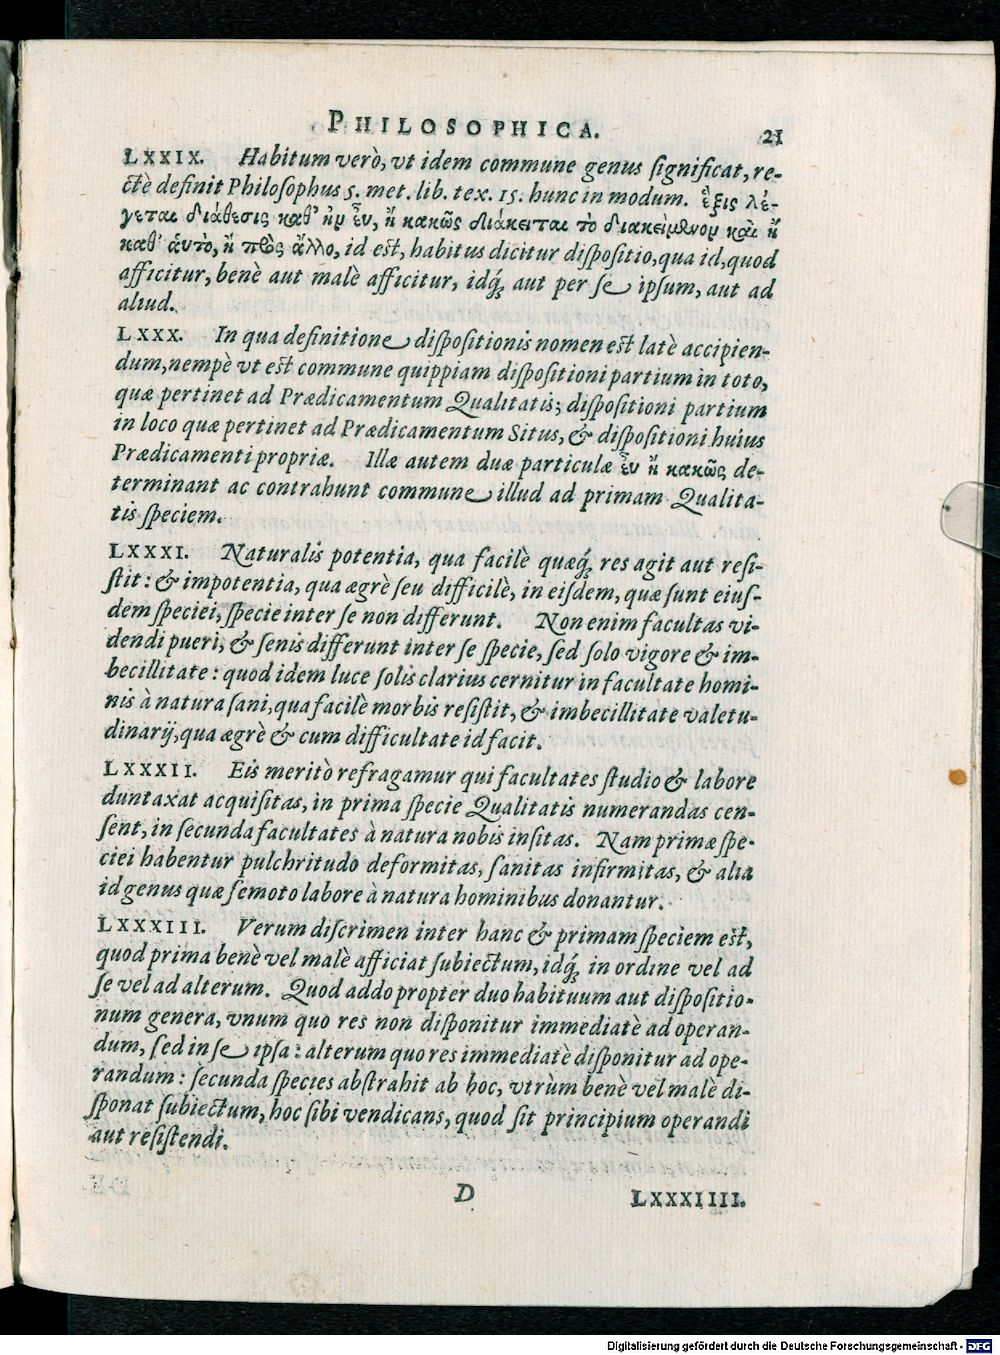 PHILOSOPHICA. 21
LXXIX. Habitum verò, vt idem commune genus ſignificat, re-
ctè definit Philoſophus 5. met. lib. tex. 15. hunc in modum. ἕξις λέ-
γεται διάθεσις καθ' ἣν εὖ, ἢ κακῶς διάκειται τὸ διακείμϟνον καὶ ἢ
καθ' ἁυτὸ, ἢ πϱὸς ἄλλο, id est, habitus dicitur diſpoſitio, qua id, quod
afficitur, benè aut malè afficitur, idq́; aut per ſe ipſum, aut ad
aliud.
LXXX. In qua definitione diſpoſitionis nomen est latè accipien-
dum, nempè vt est commune quippiam diſpoſitioni partium in toto,
quæ pertinet ad Prædicamentum Qualitatis; diſpoſitioni partium
in loco quæ pertinet ad Prædicamentum Situs, & diſpoſitioni huius
Prædicamenti propriæ. Illæ autem duæ particulæ εὖ ἢ κακῶς de-
terminant ac contrahunt commune illud ad primam Qualita-
tis ſpeciem.
LXXXI. Naturalis potentia, qua facilè quæq́; res agit aut reſi-
ſtit: & impotentia, qua ægrè ſeu difficilè, in eiſdem, quæ ſunt eiuſ-
dem ſpeciei, ſpecie inter ſe non differunt. Non enim facultas vi-
dendi pueri, & ſenis differunt inter ſe ſpecie, ſed ſolo vigore & im-
becillitate: quod idem luce ſolis clarius cernitur in facultate homi-
nis à natura ſani, qua facilè morbis reſiſtit, & imbecillitate valetu-
dinarij, qua ægrè & cum difficultate id facit.
LXXXII. Eis meritò refragamur qui facultates ſtudio & labore
duntaxat acquiſitas, in prima ſpecie Qualitatis numerandas cen-
ſent, in ſecunda facultates à natura nobis inſitas. Nam primæ ſpe-
ciei habentur pulchritudo deformitas, ſanitas infirmitas, & alia
id genus quæ ſemoto labore à natura hominibus donantur.
LXXXIII. Verum diſcrimen inter hanc & primam ſpeciem est,
quod prima benè vel malè afficiat ſubiectum, idq́; in ordine vel ad
ſe vel ad alterum. Quod addo propter duo habituum aut diſpoſitio-
num genera, vnum quo res non diſponitur immediatè ad operan-
dum, ſed in ſe ipſa: alterum quo res immediatè diſponitur ad ope-
randum: ſecunda ſpecies abſtrahit ab hoc, vtrùm benè vel malè di-
ſponat ſubiectum, hoc ſibi vendicans, quod ſit principium operandi
aut reſiſtendi.
D LXXXIIII.
Digitalisierung gefördert durch die Deutsche Forschungsgemeinschaft - DFG